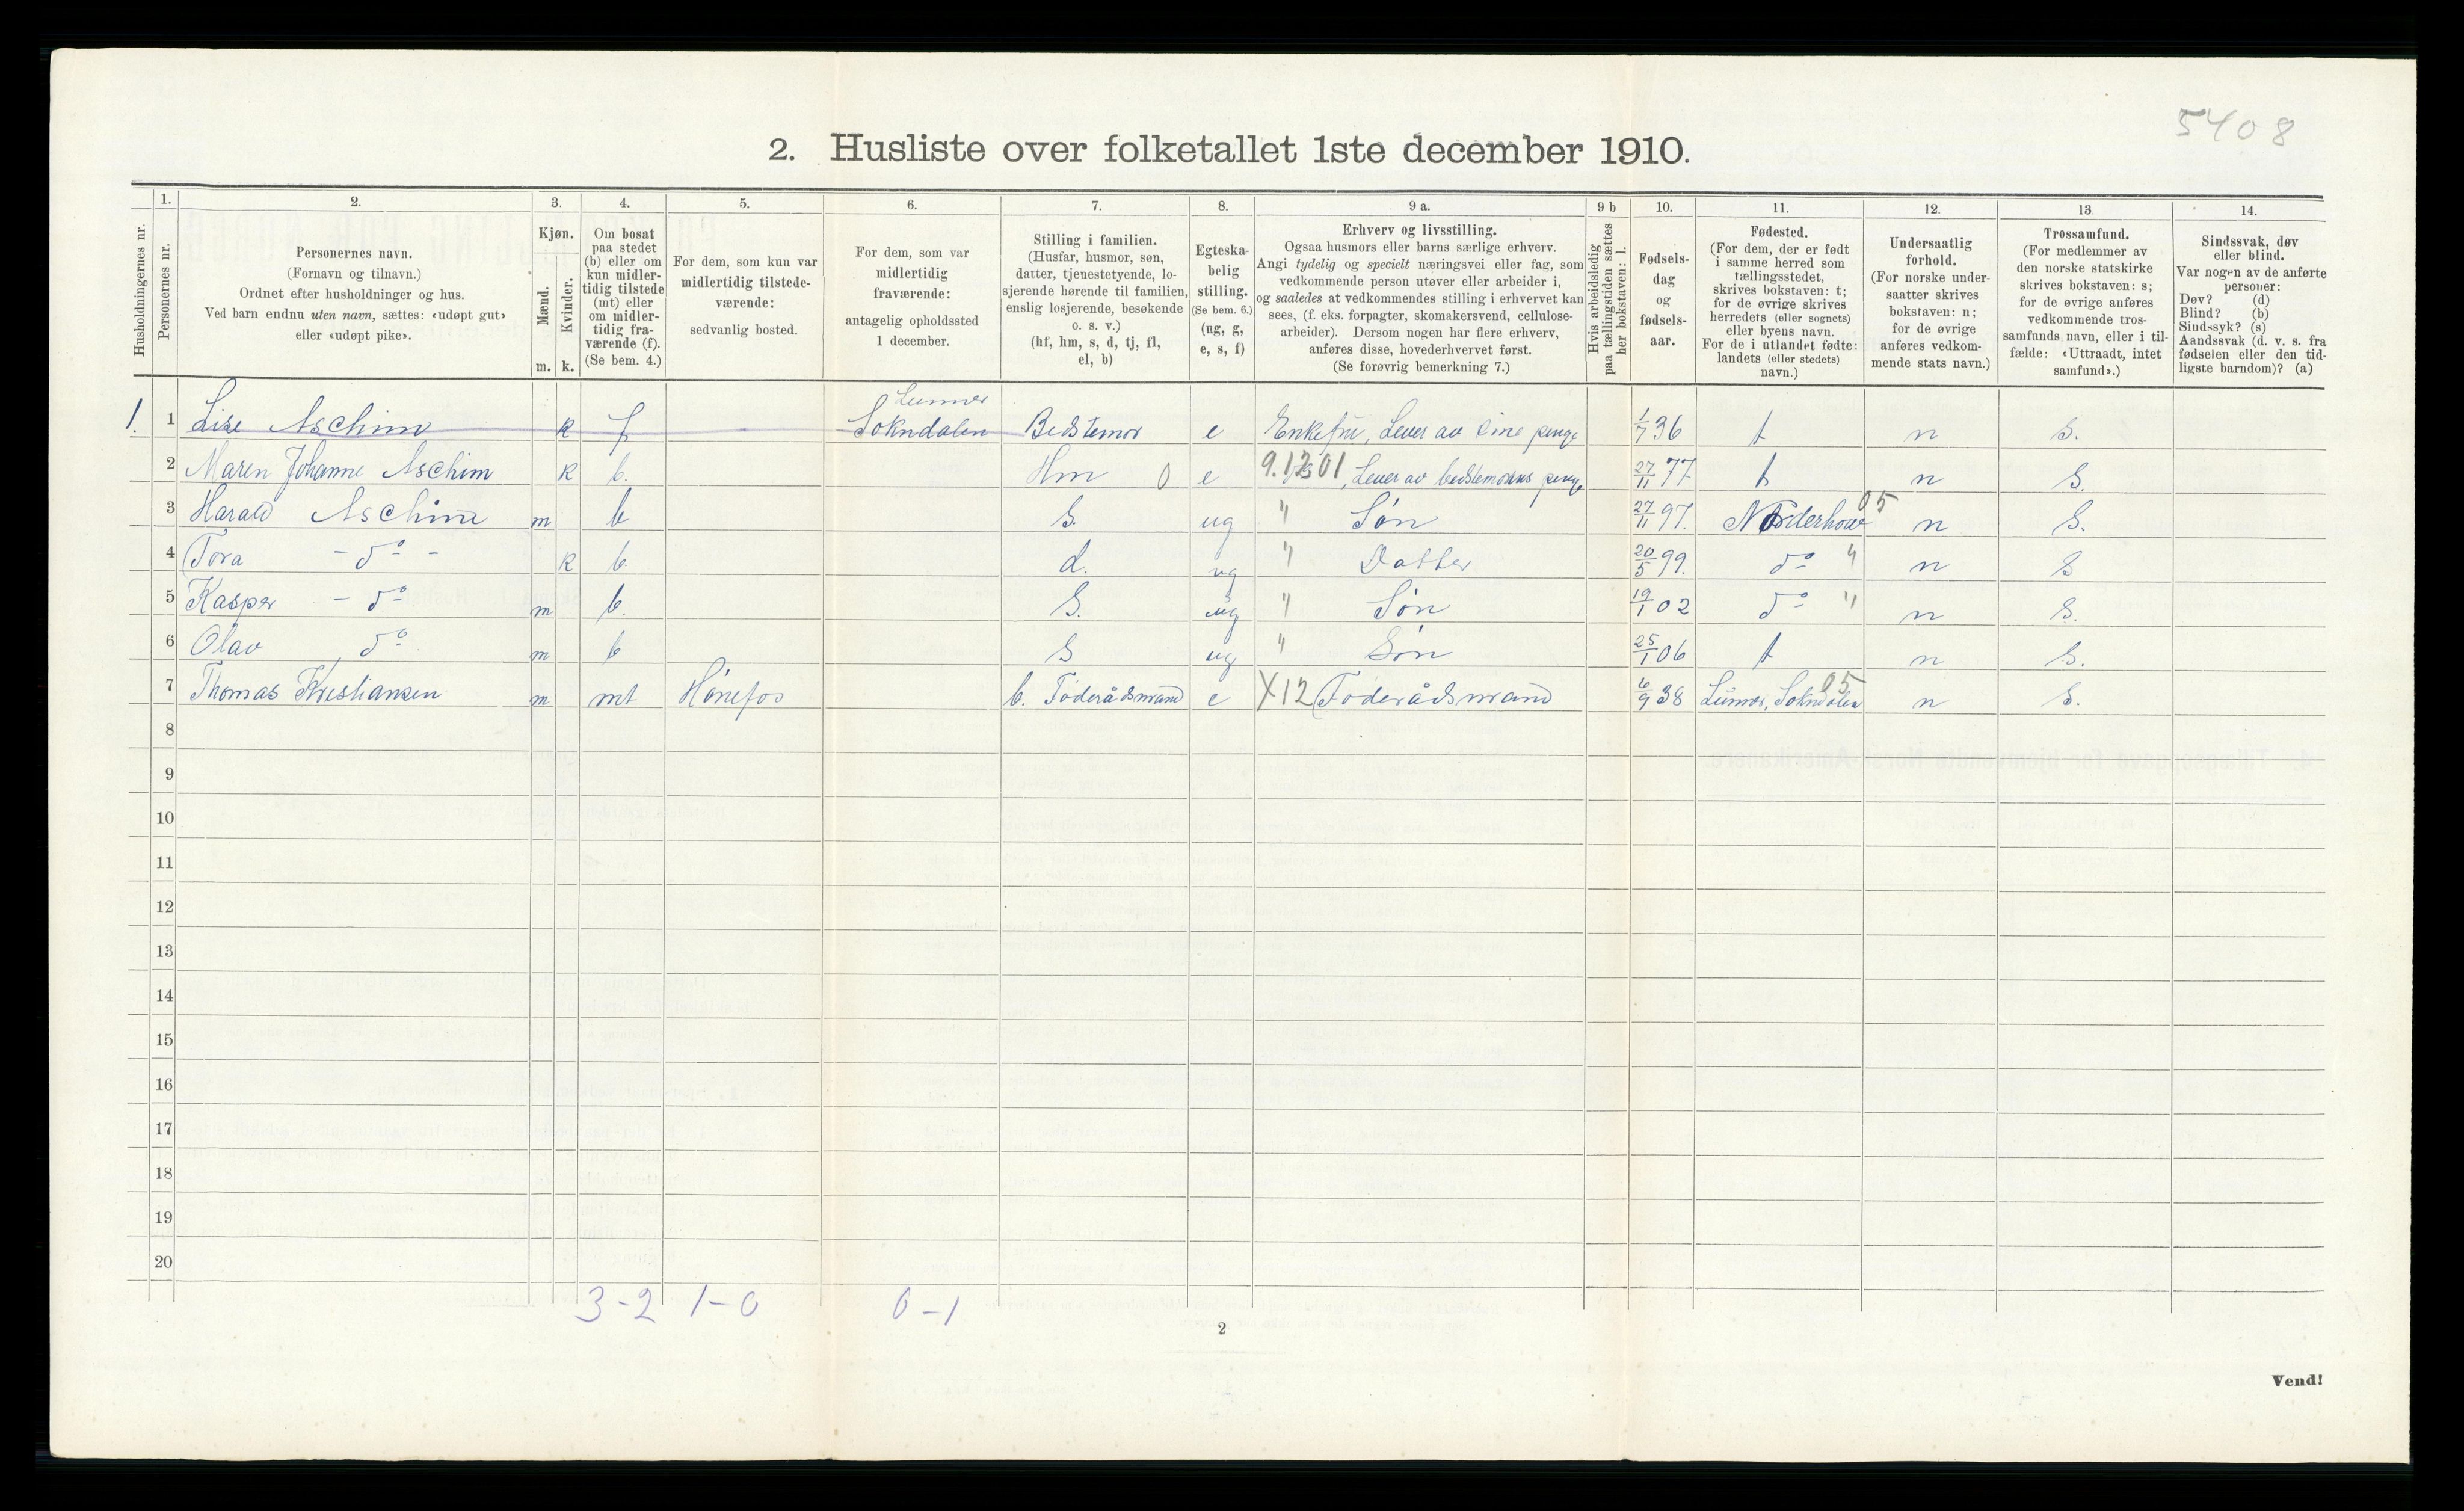 5408
2. Husliste over folketallet 1ste december 1910.
Husholdningernes nr.
1.
Personernes nr.
2.
Personernes navn.
(Fornavn og tilnavn.)
Ordnet efter husholdninger og hus.
Ved barn endnu uten navn, sættes: «udøpt gut»
eller «udøpt pike».
3.
Kjøn.
Mænd.
Kvinder.
m. k.
4.
Om bosat
paa stedet
(b) eller om
kun midler-
tidig tilstede
(mt) eller
om midler-
tidig fra-
værende (f).
(Se bem. 4.)
5.
For dem, som kun var
midlertidig tilstede-
værende:
sedvanlig bosted.
6.
For dem, som var
midlertidig
fraværende:
antagelig opholdssted
1 december.
7.
Stilling i familien.
(Husfar, husmor, søn,
datter, tjenestetyende, lo-
sjerende hørende til familien,
enslig losjerende, besøkende
o. s. v.)
(hf, hm, s, d, tj, fl,
el, b)
8.
Egteska-
belig
stilling.
(Se bem. 6.)
(ug, g,
e, s, f)
9 a.
Erhverv og livsstilling.
Ogsaa husmors eller barns særlige erhverv.
Angi tydelig og specielt næringsvei eller fag, som
vedkommende person utøver eller arbeider i,
og saaledes at vedkommendes stilling i erhvervet kan
sees, (f. eks. forpagter, skomakersvend, cellulose-
arbeider). Dersom nogen har flere erhverv,
anføres disse, hovederhvervet først.
(Se forøvrig bemerkning 7.)
9 b
Hvis arbeidsledig
paa tællingstiden sættes
her bokstaven: l.
10.
Fødsels-
dag
og
fødsels-
aar.
11.
Fødested.
(For dem, der er født
i samme herred som
tællingsstedet,
skrives bokstaven: t;
for de øvrige skrives
herredets (eller sognets)
eller byens navn.
For de i utlandet fødte:
landets (eller stedets)
navn.)
12.
Undersaatlig
forhold.
(For norske under-
saatter skrives
bokstaven: n;
for de øvrige
anføres vedkom-
mende stats navn.)
13.
Trossamfund.
(For medlemmer av
den norske statskirke
skrives bokstaven: s;
for de øvrige anføres
vedkommende tros-
samfunds navn, eller i til-
fælde: «Uttraadt, intet
samfund».)
14.
Sindssvak, døv
eller blind.
Var nogen av de anførte
personer:
Døv? (d)
Blind? (b)
Sindssyk? (s)
Aandssvak (d. v. s. fra
fødselen eller den tid-
ligste barndom)? (a)
Lunner
1. 1 Lise Aschim k f Sokndalen Bedstemor e Enkefru, Lever av sine penge 1/7 36 t n S.
2 Maren Johanne Aschim k b. Hm 0 e 9.1201, Lever av bedstemorens penge 27/11 77 t n S.
3 Harald Aschim m b S. ug " Søn 27/11 97. Norderhov 05 n S.
4 Tora - do - k b. d. ug " Datter 20/5 99. do " n S
5 Kasper - do m b. S. ug " Søn 19/1 02 do " n S.
6 Olav do m b S ug " Søn 25/1 06 t n S.
7 Thomas Kristiansen m mt Hønefos b. Føderådsmand e X12 Føderådsmand 6/9 38 Lunner, Sokndalen 05 n S.
8
9
10
11
12
13
14
15
16
17
18
19
20
3-2 1-0 0-1
2
Vend!